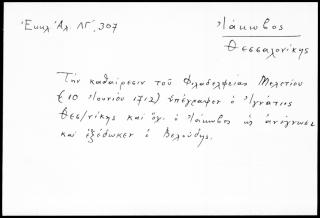 Ἐκκλ Ἀλ. ΛΓ΄, 307
Ἰάκωβος
Θεσσαλονίκης
Τὴν καθαίρεσιν τοῦ Φιλαδελφείας Μελετίου
(10 Ἰουνίου 1712) ὑπέγραψεν ὁ Ἰγνάτιος
Θεσ/νίκης καὶ ὄχι ὁ Ἰάκωβος ὡς ἀνέγνωσε
καὶ ἐξέδωκεν ὁ Βελούδης.